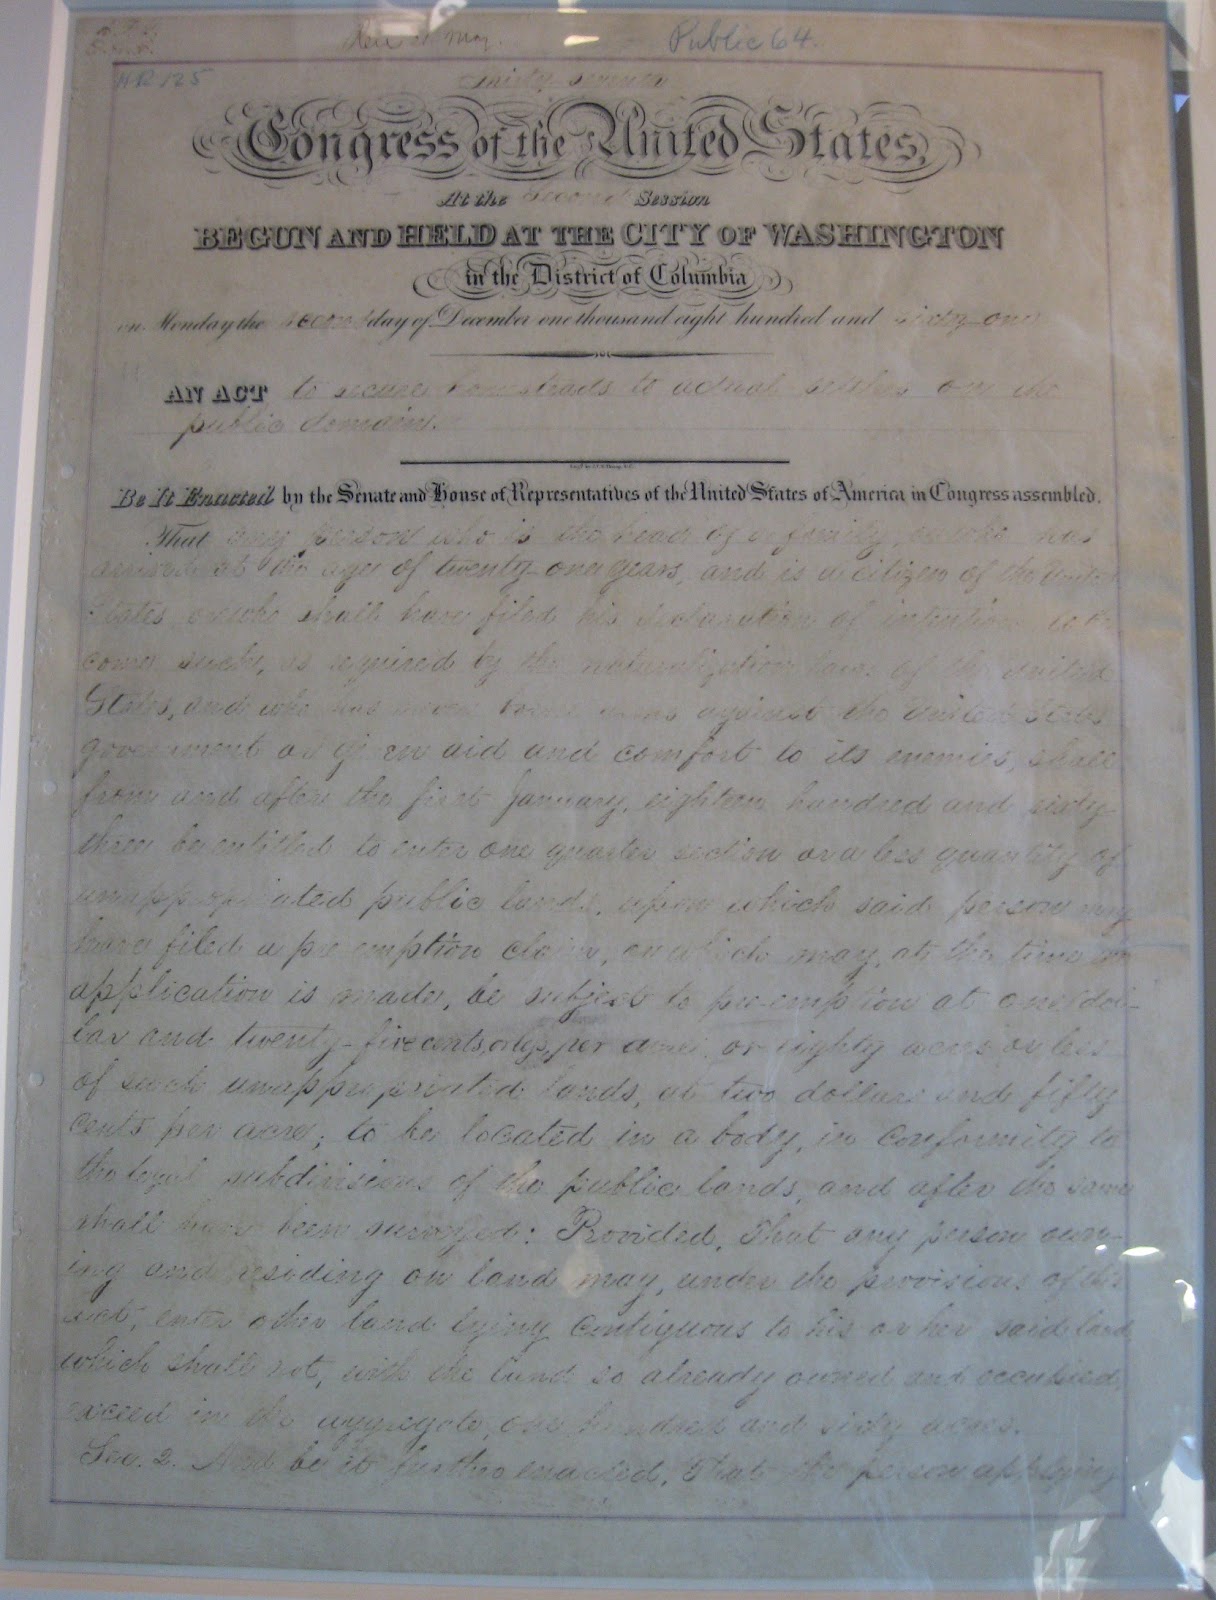 Public 64.
HR 125
Thirty-seventh
Congress of the United States,
At the Second Session
BEGUN AND HELD AT THE CITY OF WASHINGTON
in the District of Columbia
on Monday the second day of December one thousand eight hundred and sixty-one
AN ACT to secure homesteads to actual settlers on the
public domain.
Be It Enacted by the Senate and House of Representatives of the United States of America in Congress assembled,
That any person who is the head of a family, or who has
arrived at the age of twenty-one years, and is a citizen of the United
States, or who shall have filed his declaration of intention to be-
come such, as required by the naturalization laws of the United
States, and who has never borne arms against the United States
government or given aid and comfort to its enemies, shall
from and after the first January, eighteen hundred and sixty-
three be entitled to enter one quarter section or a less quantity of
unappropriated public lands, upon which said person may
have filed a pre emption claim, or which may, at the time
application is made, be subject to pre-emption at one dol-
lar and twenty-five cents, or less, per acre; or eighty acres or less
of such unappropriated lands, at two dollars and fifty
cents per acre; to be located in a body, in conformity to
the legal subdivisions of the public lands, and after the same
shall have been surveyed: Provided, That any person own-
ing and residing on land may, under the provisions of this
act, enter other land lying contiguous to his or her said land
which shall not, with the land so already owned and occupied,
exceed in the aggregate one hundred and sixty acres.
Sec. 2. And be it further enacted, That the person applying